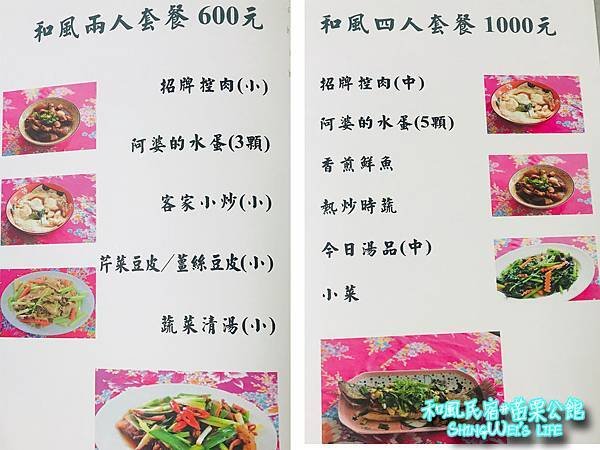 和風兩人套餐 600元
招牌控肉(小)
阿婆的水蛋(3顆)
客家小炒(小)
芹菜豆皮/薑絲豆皮(小)
蔬菜清湯(小)
和風四人套餐 1000元
招牌控肉(中)
阿婆的水蛋(5顆)
香煎鮮魚
熱炒時蔬
今日湯品(中)
小菜
和風民宿#苗栗公館
SHINGWEI'S LIFE